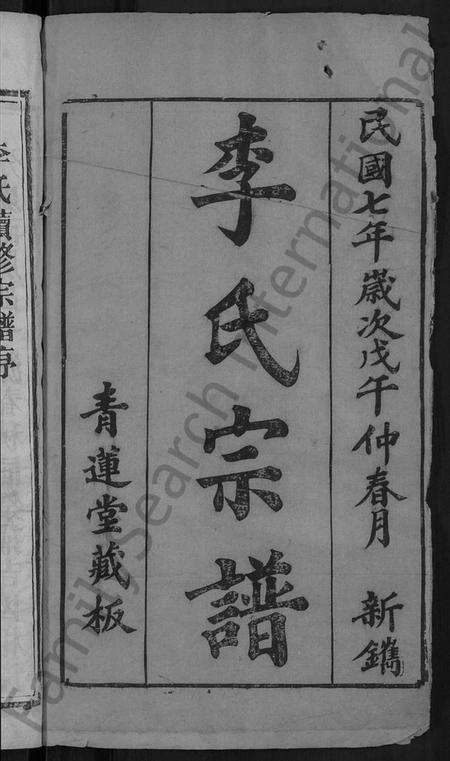 民國七年歲次戊午仲春月 新鐫
李氏宗譜
青蓮堂藏板
李氏續修宗譜序
FamilySearch International